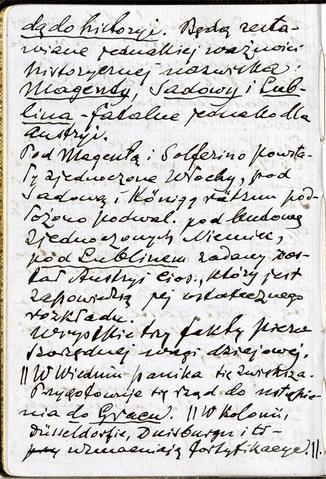 dą do historyi. Będą zesta-
wiane jednakiej ważności
historycznej nazwiska:
Magenty, Sadowy i Lub-
lina - fatalne jednako dla
Austryi.
Pod Magentą i Solferino powsta-
ły zjednoczone Włochy, pod
Sadową i Königgrätzem poło-
żono podwal. pod budowę
zjednoczonych Niemiec,
pod Lublinem zadany zos-
tał Austryi cios, który jest
zapowiedzią jej ostatecznego
rozkładu.
Wszystkie trzy fakty pierw-
szorzędnej wagi dziejowej.
|| W Wiedniu panika się zwiększa.
Przygotowuje się rząd do ustąpie-
nia do Gracu. || W Kolonii,
Düsseldorfie, Duisburgu i t-
wzmacniają fortyfikacye. ||.